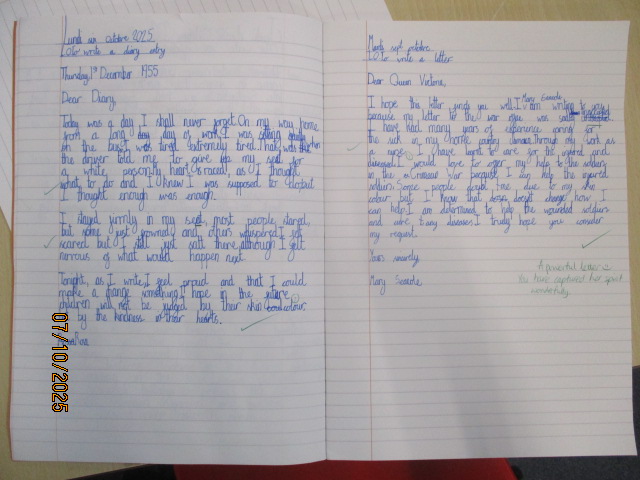 Lundi un octobre 2025
L.O. to write a diary entry
Thursday 1st December 1955
Dear Diary,
Today was a day I shall never forget. On my way home
from a long day of work, I was sitting
on the bus, I was tired extremely tired. That was when
the driver told me to give up my seat for
a white person, my heart raced, as I thought
what to do and I knew I was supposed to do but
I thought enough was enough.
I stayed firmly in my seat, most people stared,
but some just frowned and others whispered. I felt
scared but I still just satt there, although I felt
nervous of what would happen next.
Tonight, as I write, I feel proud and that I could
make a change something. I hope in the future
children will not be judged by their skin colour
by the kindness in their hearts.
07/10/2025
Mardi sept octobre
L.O. to write a letter
Dear Queen Victoria,
I hope this letter finds you well. I, Mary Seacole, am writing to you
because my letter to the war was
I have had many years of experience caring for
the sick in my home, Through my work as
a nurse, I have learnt to care for the injured and
diseased. I would love to offer my help to the soldiers
in the Crimean War because I can help the injured
soldiers. Some people doubt me due to my skin
colour but I know that doesn't change how I
can help. I am determined to help the wounded soldiers
and cure any diseases. I truly hope you consider
my request.
Yours sincerely,
Mary Seacole
A powerful letter
You have captured her spirit
wonderfully.